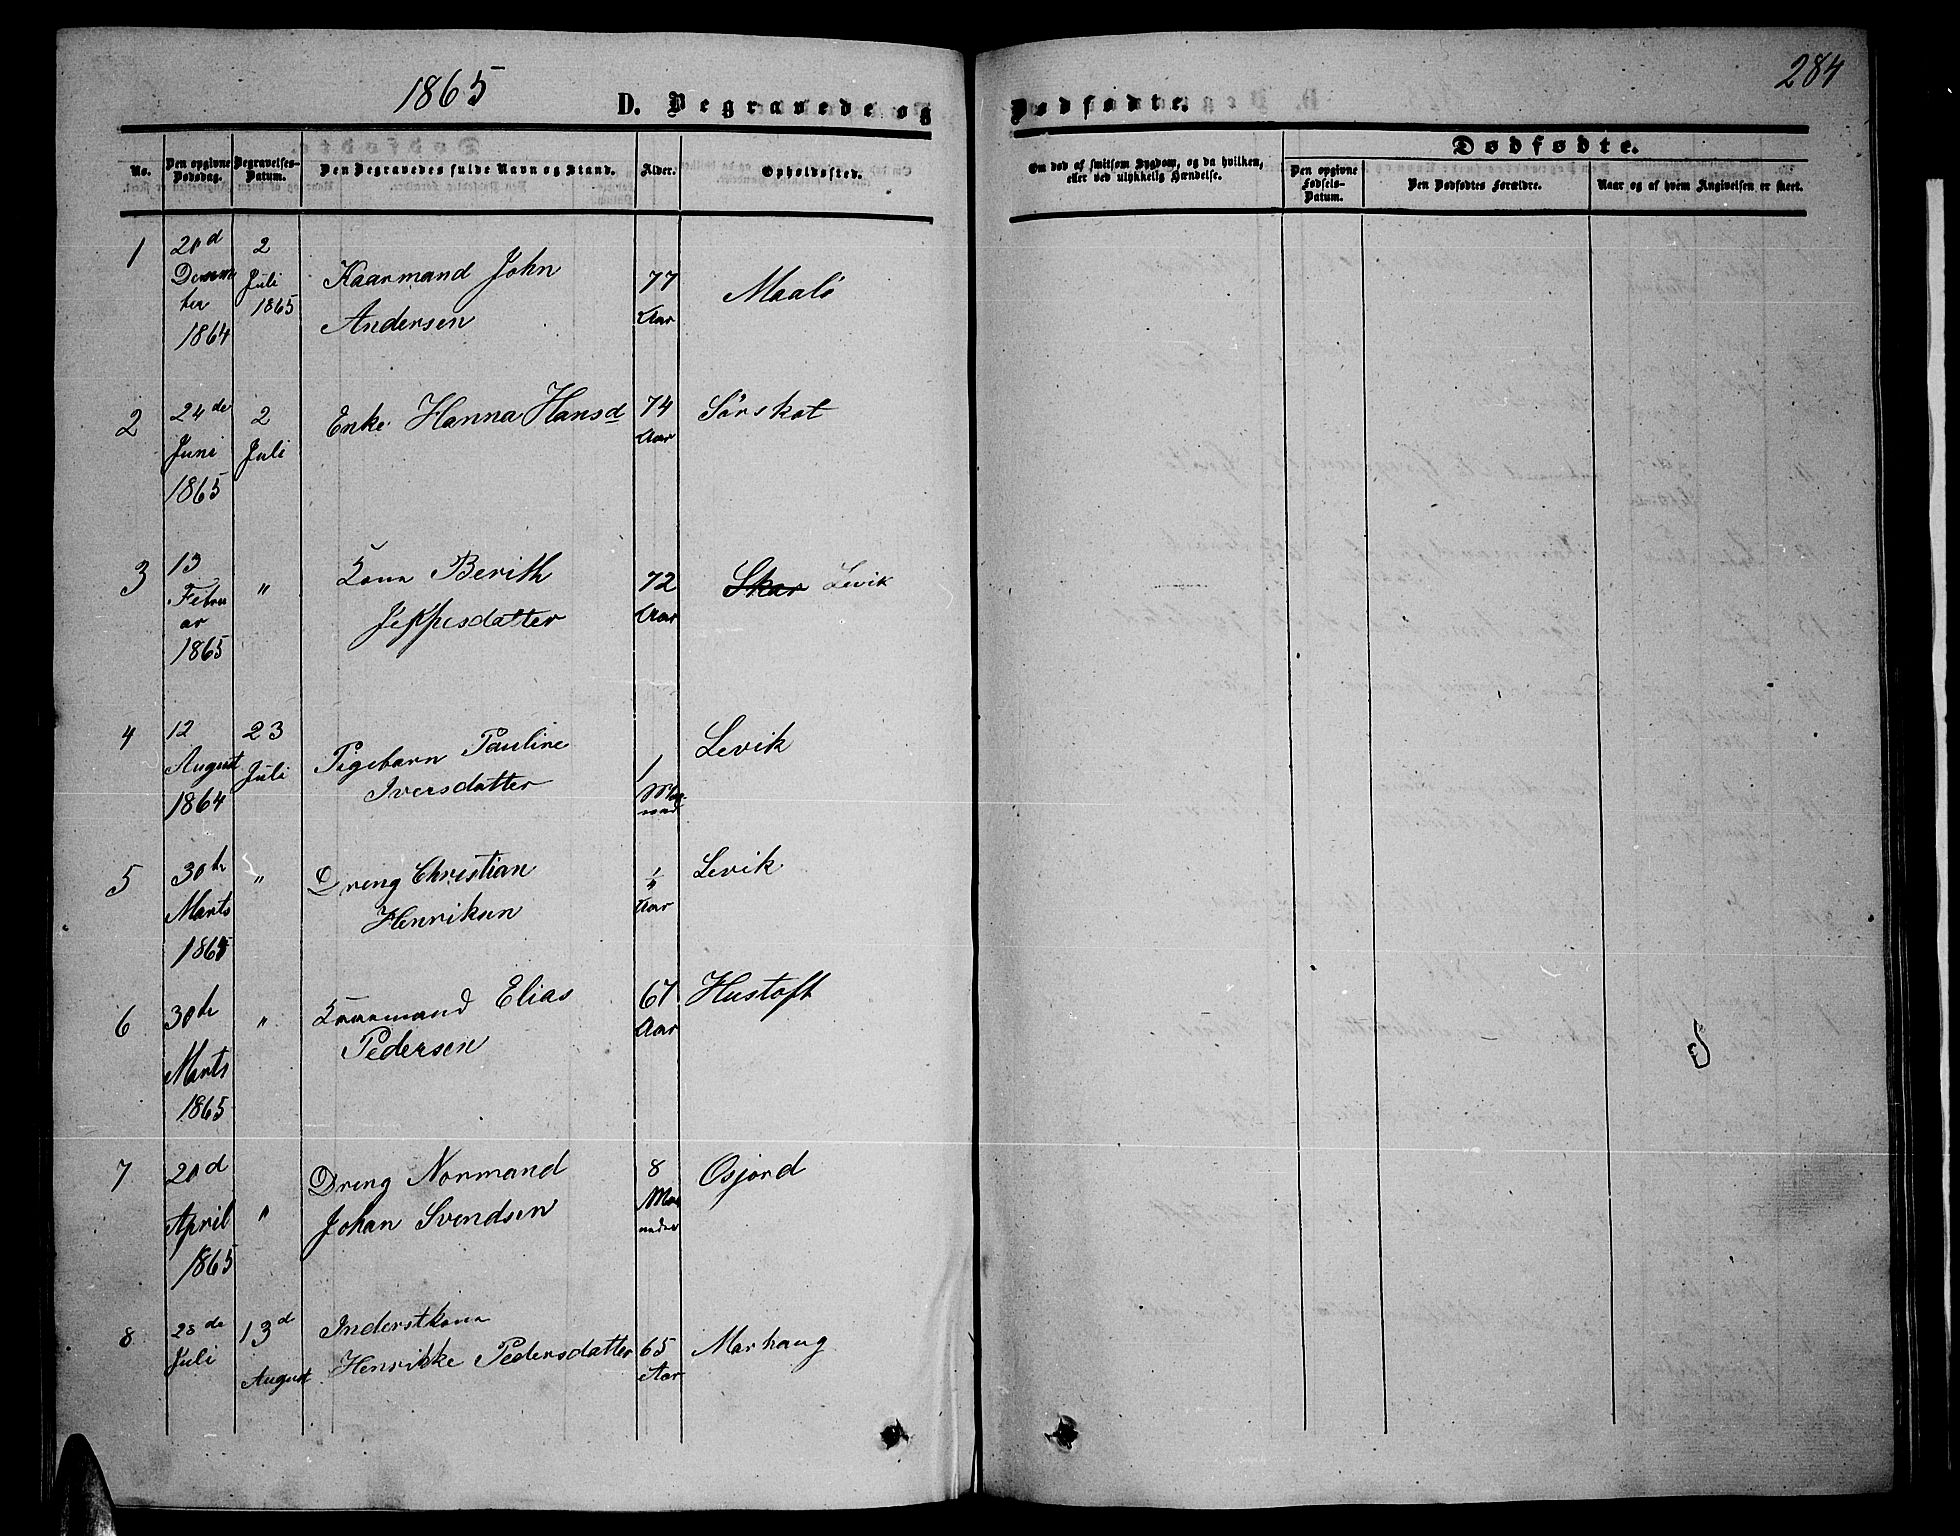 1865
284
D. Begravede og Dødfødte.
No.
Den opgivne Dødsdag.
Begravelses-Datum.
Den Begravedes fulde Navn og Stand.
Alder.
Opholdssted.
Om død af smitsom Sygdom, og da hvilken, eller ved ulykkelig Hændelse.
Dødfødte.
Den opgivne Fødsels-Datum.
Den Dødfødtes Forældre.
Naar og af hvem Angivelsen er skeet.
1
Decem
ber
1864
2
Juli
1865
Kaarmand John
Andersen
77
Aar
Maalø
2
24de
Juni
1865
2
Juli
Enke Hanna Hansd
74
Aar
Sørskot
3
13
Febru
ar
1865
"
Kone Berith
Jeppesdatter
72
Aar
Skar Levik
4
12
August
1864
23
Juli
Pigebarn Pauline
Iversdatter
1
Maa
ned
Levik
5
30te
Marts
1865
"
Dreng Christian
Henriksen
Aar
Levik
6
30te
Marts
1865
"
Kaarmand Elias
Pedersen
67
Aar
Hustoft
7
April
1865
"
Dreng Normand
Johan Svendsen
8
Maa
neder
Osjord
8
28de
Juli
13d
August
Inderstkone
Henrikke Pedersdatter
65
Aar
Marhaug